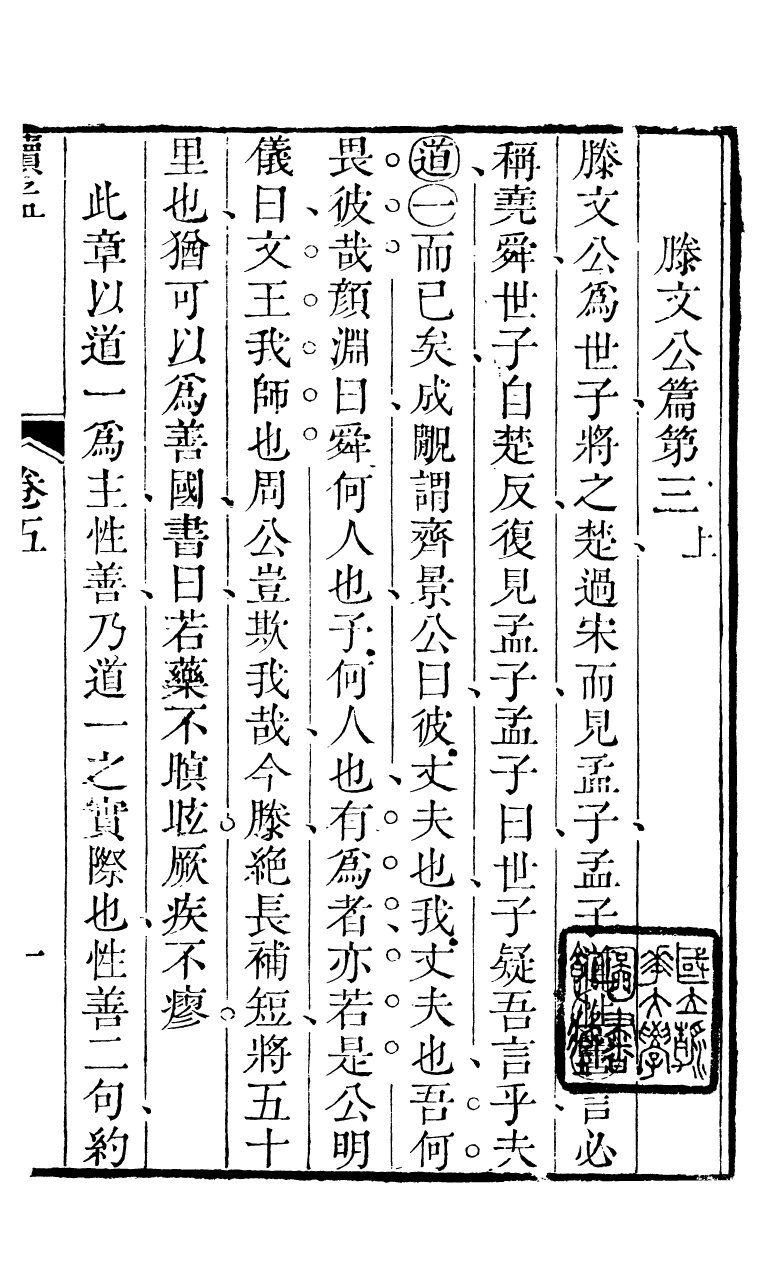 滕文公篇第三上
滕文公爲世子將之楚過宋而見孟子孟子言必
稱堯舜世子自楚反復見孟子孟子曰世子疑吾言乎夫
道一而已矣成覵謂齊景公曰彼丈夫也我丈夫也吾何
畏彼哉顏淵曰舜何人也予何人也有爲者亦若是公明
儀曰文王我師也周公豈欺我哉今滕絶長補短將五十
里也猶可以爲善國書曰若藥不瞑眩厥疾不瘳
此章以道一爲主性善乃道一之實際也性善二句約
讀孟
卷五
一
國立
大學
圖書